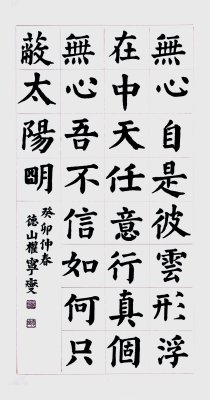 無心自是彼雲形浮
在中天任意行真個
無心吾不信如何只
蔽太陽明
癸卯仲春
德山權寧燮